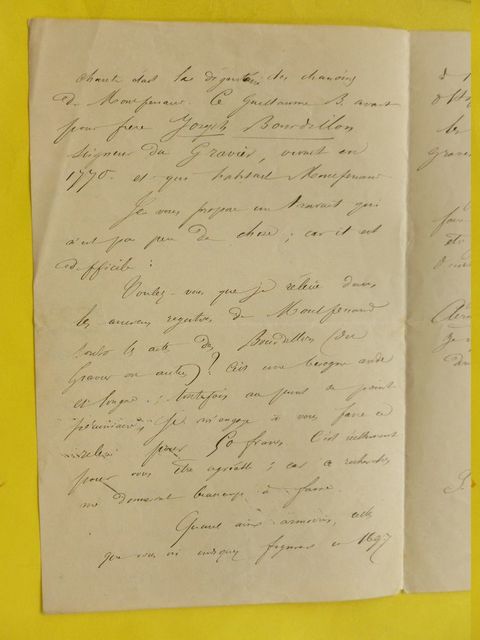 chante était la dignité des chanoines
de Montferrand. Ce Guillaume B. avait
pour frère Joseph Bourdillon
seigneur du Gravier, vivant en
1770. et qui habitait Montferrand
Je vous propose un travail qui
n'est pas peu de chose ; car il est
difficile :
Voulez-vous que je relève dans
les anciens registres de Montferrand
toutes les actes des Bourdillon (du
Gravier ou autres) ? C'est une besogne
et longue : toutefois au point de
pécuniaire, je m'engage à vous faire ce
pour 50 francs. C'est réellement
pour vous être agréable ; car ce recherches
me donneront beaucoup à faire.
Quant aux armoiries, celle
que vous m'indiquez figurent en 1697